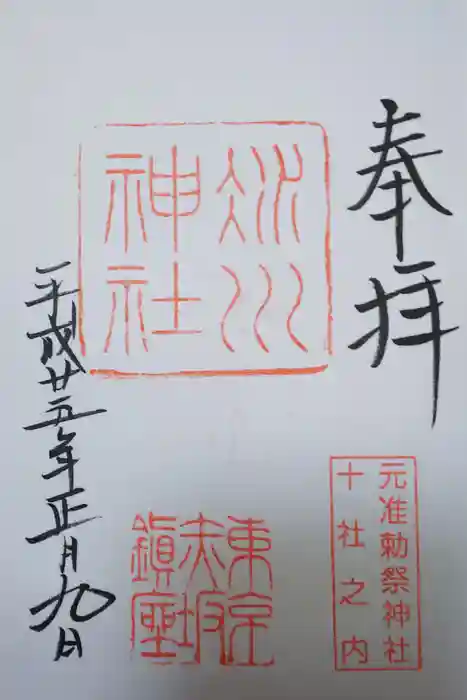 奉拝
元准勅祭神社
十社之内
氷川
神社
東京
赤坂
鎮座
平成廿五年正月九日